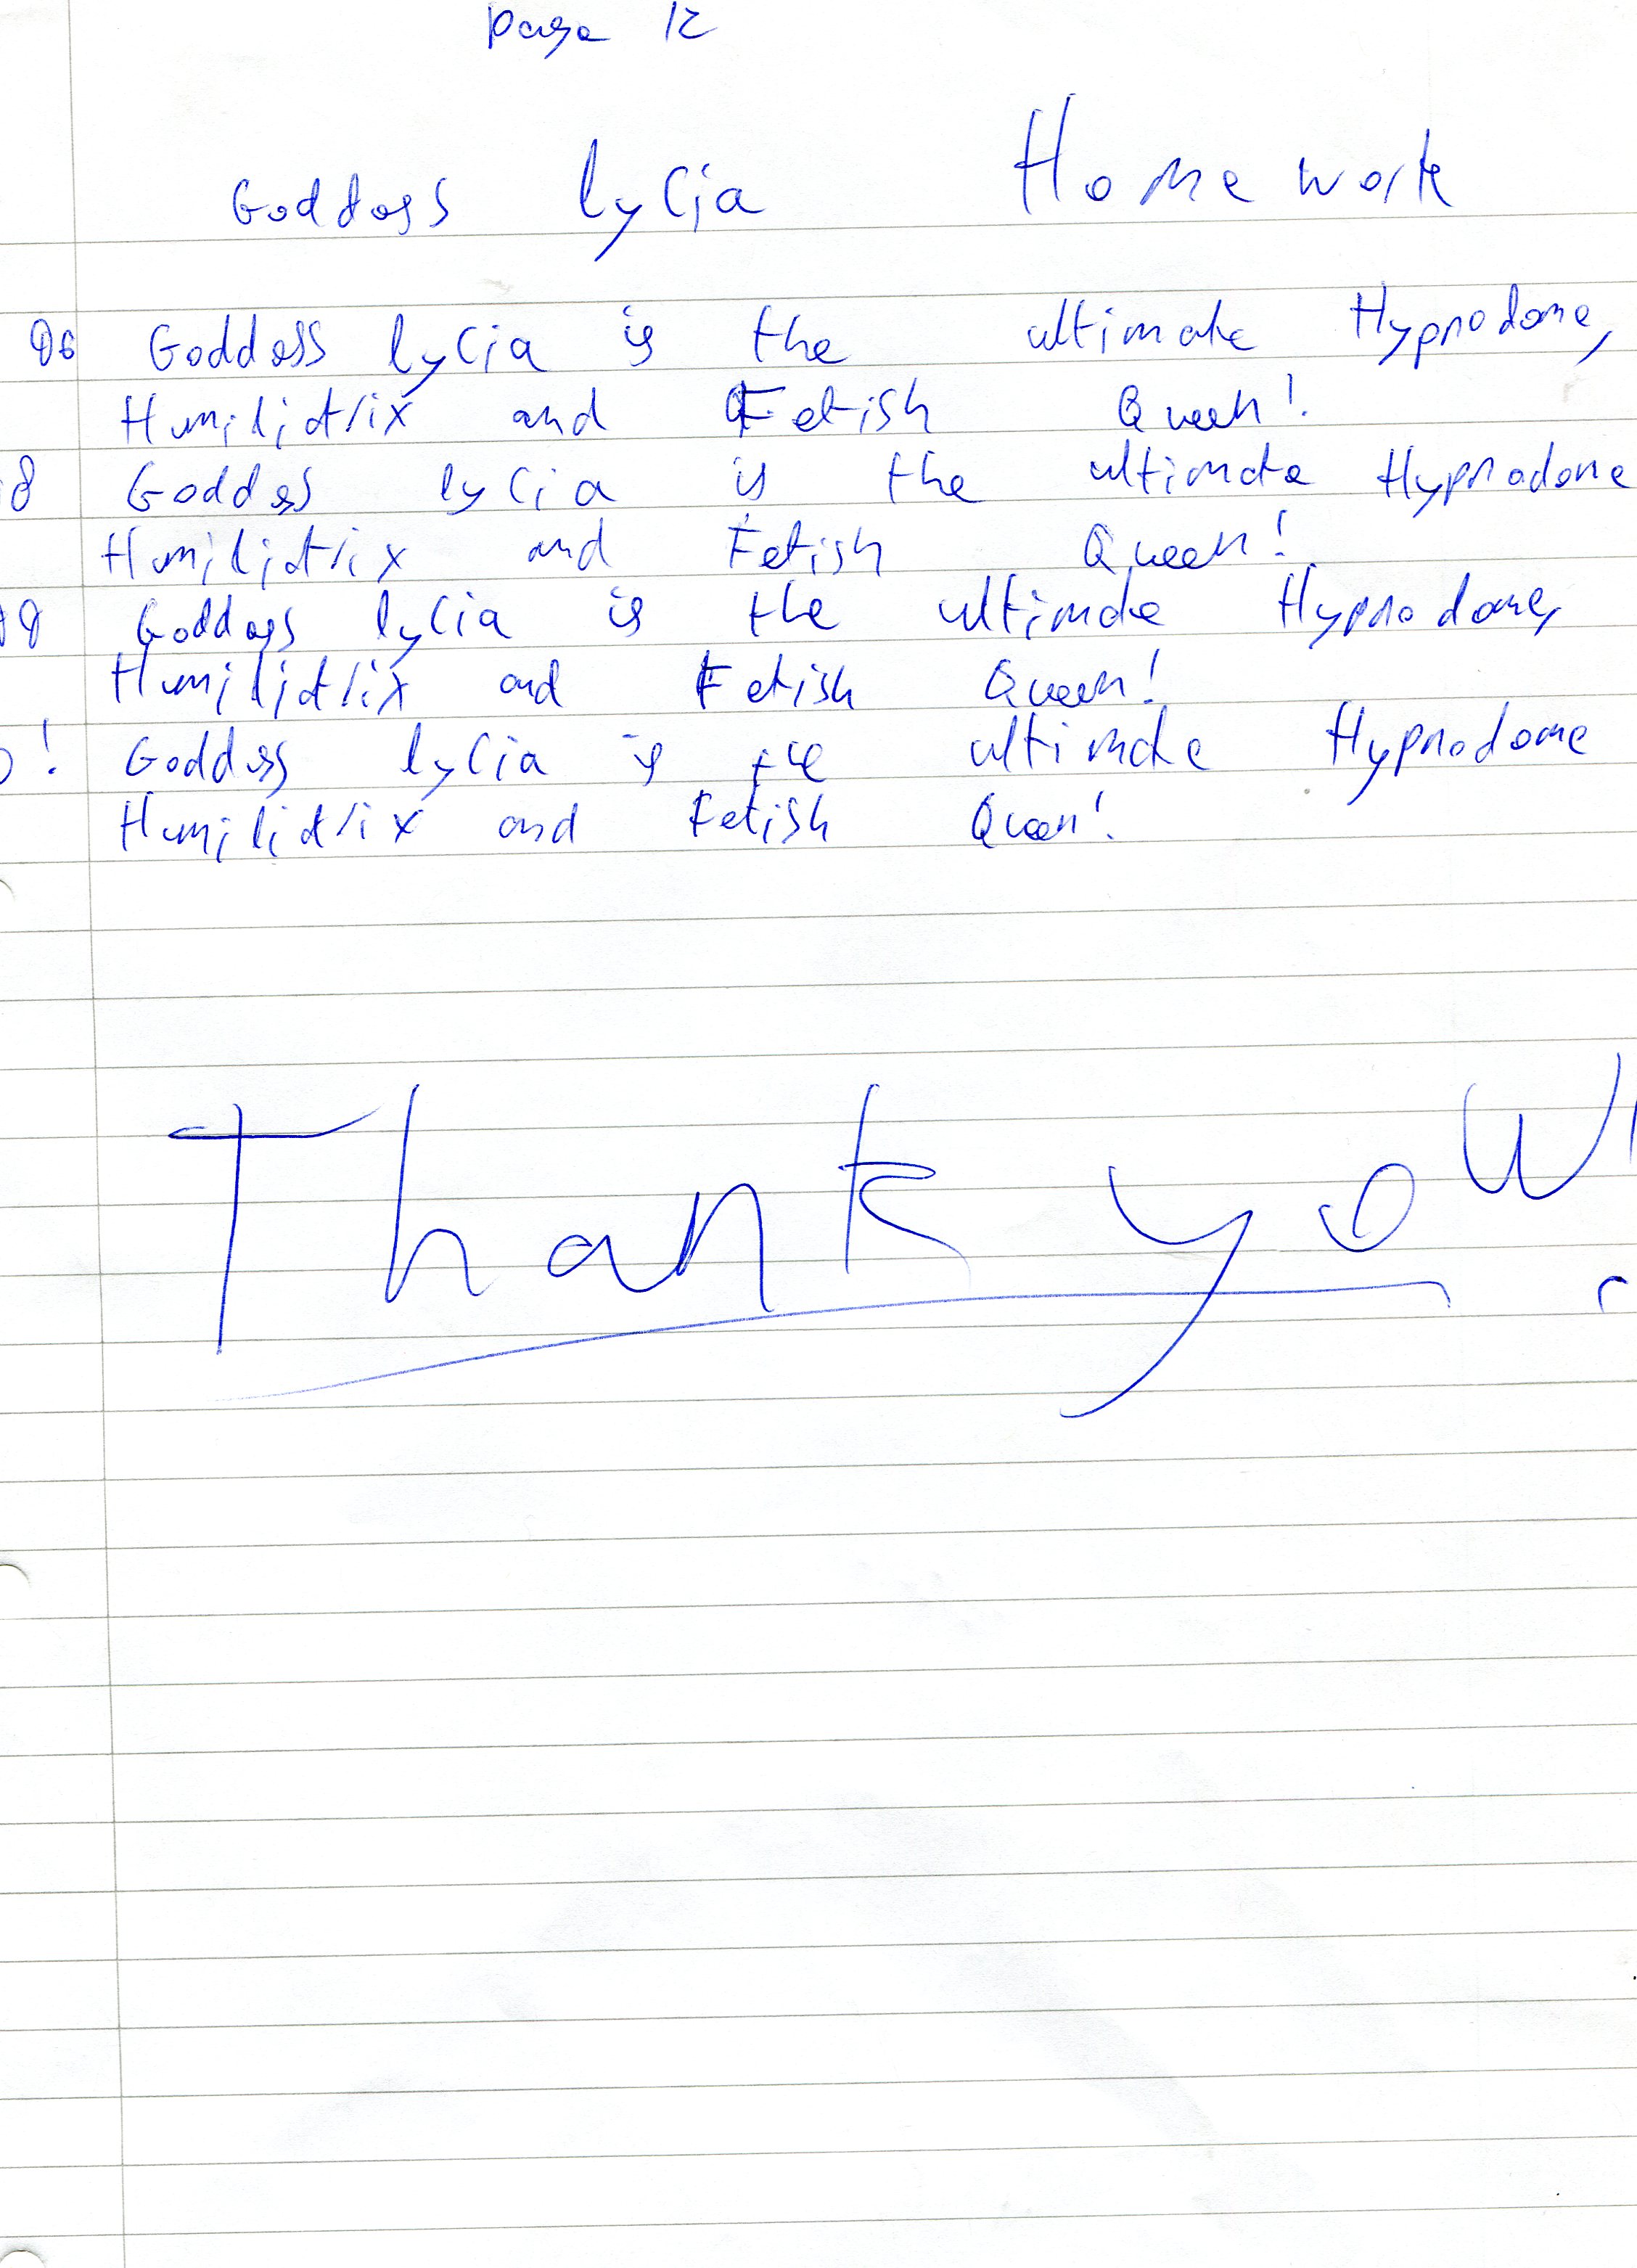 page 12
Goddess lycia Homework
96 Goddess lycia is the ultimate Hypnodome,
Humiliatrix and Fetish Queen!
8 Goddess lycia is the ultimate Hypnodome
Humiliatrix and Fetish Queen!
9 Goddess lycia is the ultimate Hypnodome,
Humiliatrix and Fetish Queen!
! Goddess lycia is the ultimate Hypnodome
Humiliatrix and Fetish Queen!
Thank you!